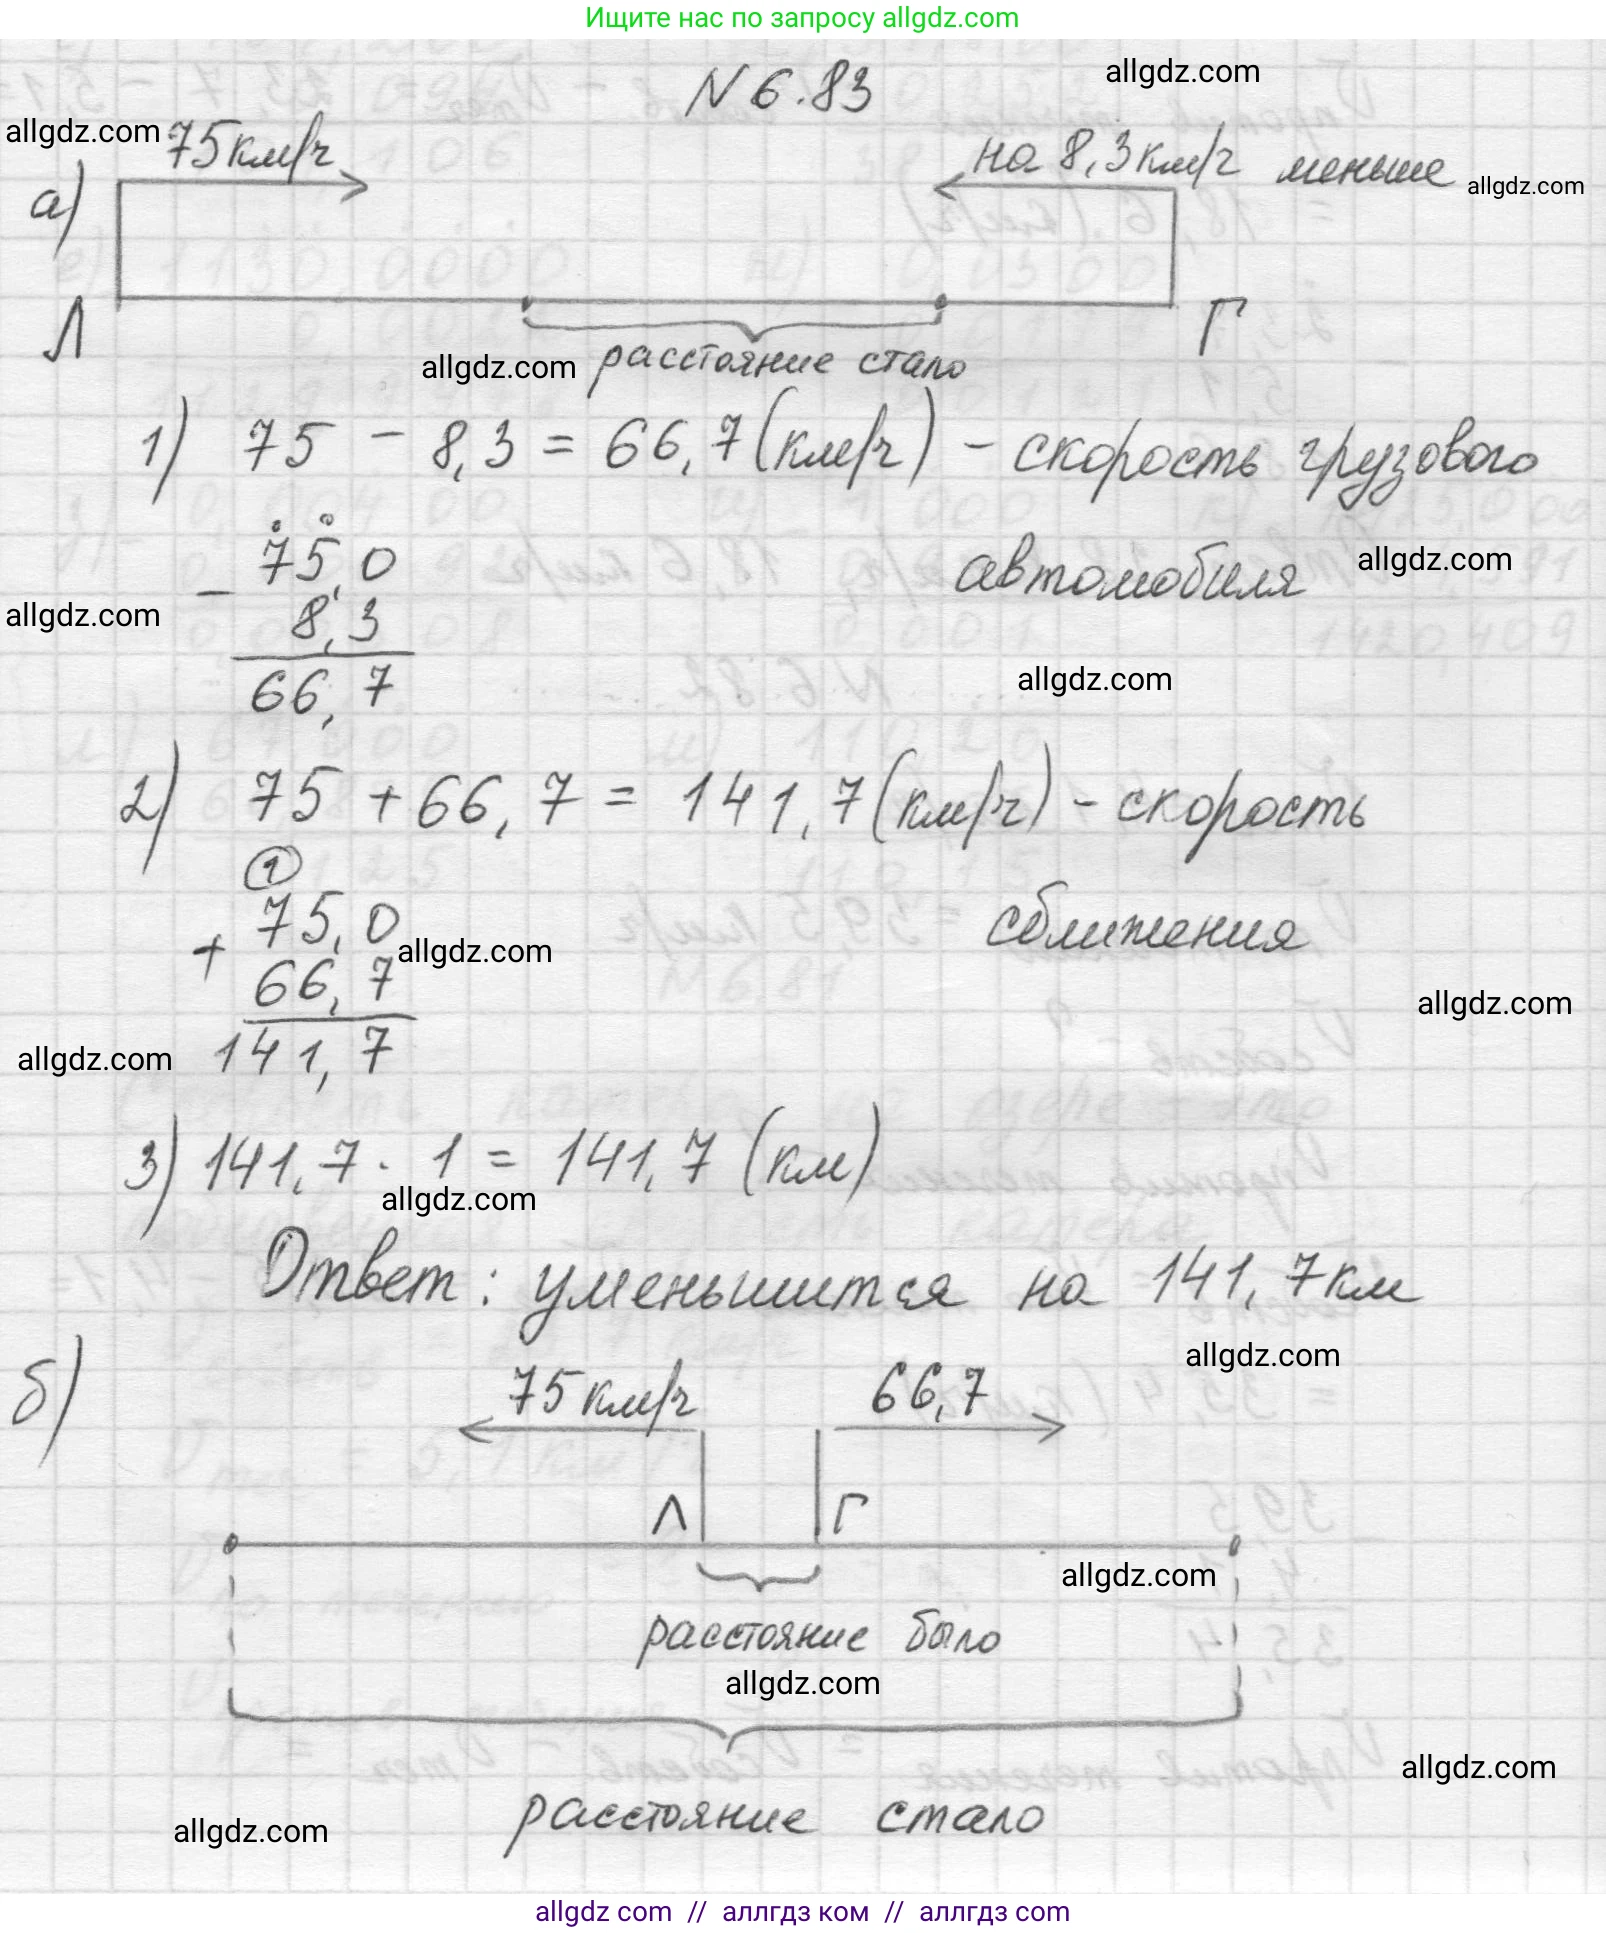 Ищите нас по запросу allgdz.com
N 6.83
allgdz.com
allgdz.com
75км/ч
на 8,3км/ч меньше
allgdz.com
а)
Л
Г
allgdz.com
расстояние стало
1) 75 - 8,3 = 66,7(км/ч) - скорость грузового
автомобиля
allgdz.com
75,0
-
allgdz.com
8,3
66,7
allgdz.com
2) 75 + 66,7 = 141,7(км/ч) - скорость
сближения
1
75,0
+
allgdz.com
66,7
allgdz.com
allgdz.com
141,7
3) 141,7 · 1 = 141,7 (км)
allgdz.com
Ответ: уменьшится на 141,7км
allgdz.com
б)
75км/ч
66,7
Л
Г
allgdz.com
расстояние было
allgdz.com
allgdz.com
расстояние стало
allgdz.com
allgdz com // аллгдз ком // аллгдз com